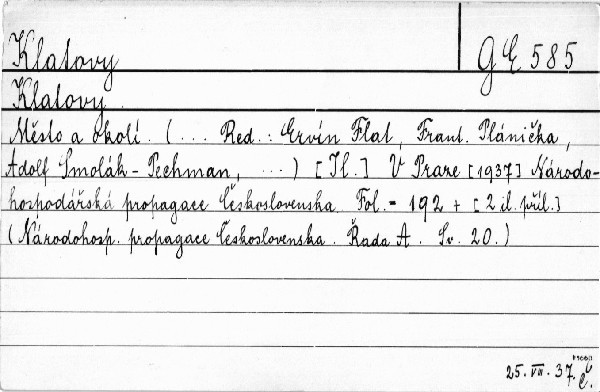 Klatovy
G E 585
Klatovy.
Město a okolí. (... Red.: Ervín Flat, Frant. Plánička,
Adolf Smolák-Pechman, ...) [Il.] V Praze [1937] Národo-
hospodářská propagace Československa. Fol. - 192 + [2 il. příl.]
(Národohosp. propagace Československa. Řada A. Sv. 20.)
25. VII. 37.